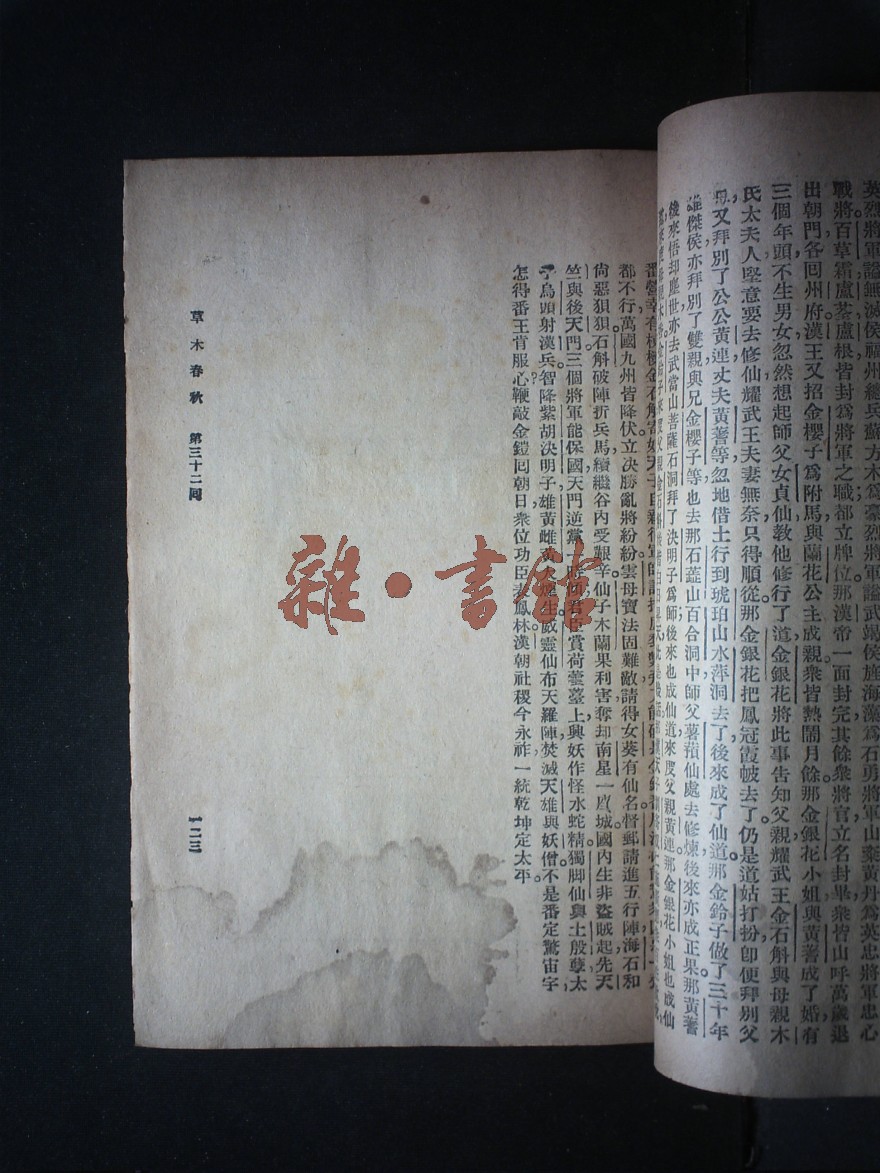 英烈將軍謚無滅侯福州總兵蘇方木爲豪烈將軍謚武竭侯旌海藻爲石勇將軍山棗黃丹爲英忠將軍忠心
戰將百草霜盧茶盧根皆封爲將軍之職都立牌位那漢帝一面封完其餘衆將官立名封畢衆皆山呼萬歲退
出朝門各回州府漢王又招金櫻子爲附馬與蘭花公主成親衆皆熱鬧月餘那金銀花小姐與黃蓍成了婚有
三個年頭不生男女忽然想起師父女貞仙教他修行了道金銀花將此事告知父親耀武王金石斛與母親木
氏太夫人堅意要去修仙耀武王夫妻無奈只得順從那金銀花把鳳冠霞帔去了仍是道姑打扮卽便拜別父
母又拜別了公公黃連丈夫黃蓍等忽地借土行到琥珀山水萍洞去了後來成了仙道那金鈴子做了三十年
雄傑侯亦拜別了雙親與兄金櫻子等也去那石蓝山百合洞中師父薯蕷仙處去修煉後來亦成正果那黃蓍
後來悟却塵世亦去武當山菩薩石洞拜了決明子爲師後來也成仙道來度父親黃連那金銀花小姐也成仙
番營幸有
都不行萬國九州皆降伏立決勝亂將紛紛雲母寶法固難敵請得女葵有仙名督郵請進五行陣海石和
尙惡狽狽石斛破陣折兵馬續繼谷內受艱辛仙子木蘭果利害奪却南星一座城國內生非盜賊起先天
竺與後天門三個將軍能保國天門逆黨一時傾君臣賞荷薹臺上興妖作怪水蛇精獨脚仙與土殷孽太
子烏頭射漢兵智降紫胡決明子雄黃雌黃大煙生威靈仙布天羅陣焚滅天雄與妖僧不是番定驚宙宇
怎得番王肯服心鞭敲金鐙回朝日衆位功臣老鳳林漢朝社稷今永祚一統乾坤定太平。
草木春秋 第三十二囘
一二三
雜·書館